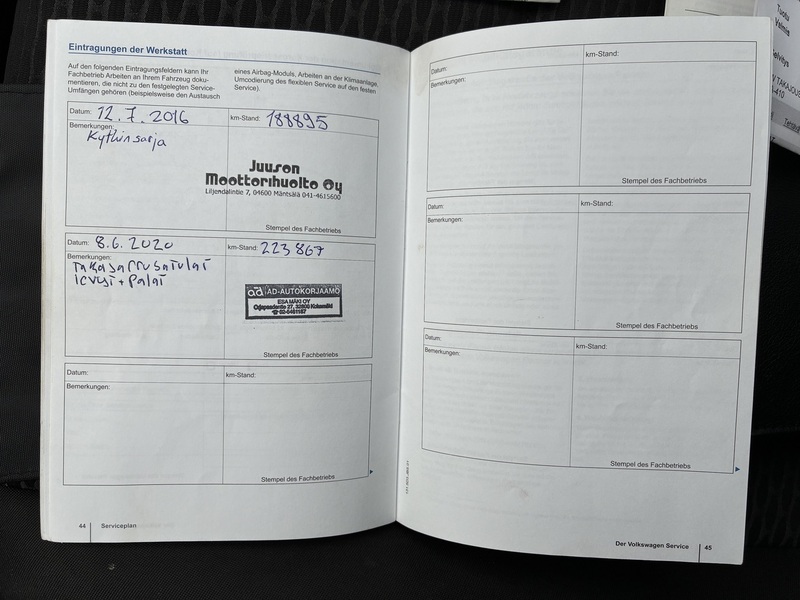 Eintragungen der Werkstatt
Auf den folgenden Eintragungsfeldern kann Ihr
Fachbetrieb Arbeiten an Ihrem Fahrzeug doku-
mentieren, die nicht zu den festgelegten Service-
Umfängen gehören (beispielsweise den Austausch
eines Airbag-Moduls, Arbeiten an der Klimaanlage,
Umcodierung des flexiblen Service auf den festen
Service).
Datum: 12.7.2016 km-Stand: 188895
Bemerkungen:
Kytkinsarja
Juuson
Moottorihuolto Oy
Liljendalintie 7, 04600 Mäntsälä 041-4615600
Stempel des Fachbetriebs
Datum: 8.6.2020 km-Stand: 223867
Bemerkungen:
Takajarrusatulat
levyt + palat
ad AD-AUTOKORJAAMO
ESA MÄKI OY
32800 Kokemäki
Stempel des Fachbetriebs
Datum: km-Stand:
Bemerkungen:
Stempel des Fachbetriebs
44 Serviceplan
Datum: km-Stand:
Bemerkungen:
Stempel des Fachbetriebs
Datum: km-Stand:
Bemerkungen:
Stempel des Fachbetriebs
Datum: km-Stand:
Bemerkungen:
Stempel des Fachbetriebs
Der Volkswagen Service 45
Tuotu
Valmis
Selvitys